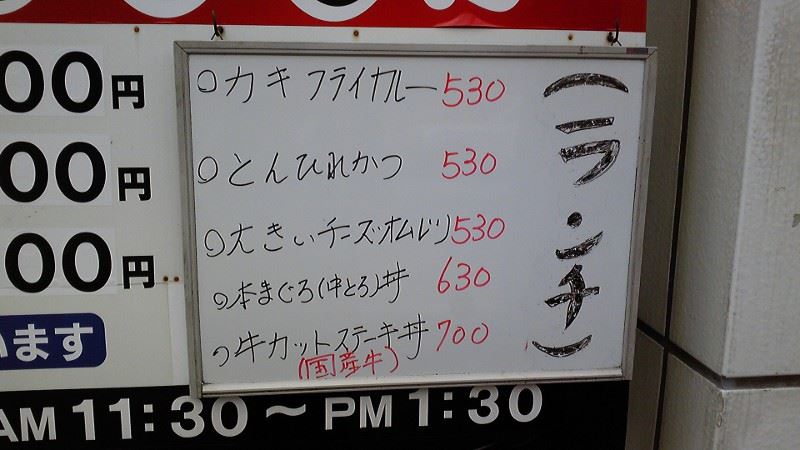 (ランチ)
○カキフライカレー 530
○とんひれかつ 530
○大きぃチーズオムレツ 530
○本まぐろ(中とろ)丼 630
○牛カットステーキ丼 700
(国産牛)
00円
00円
00円
います
AM 11:30～PM 1:30